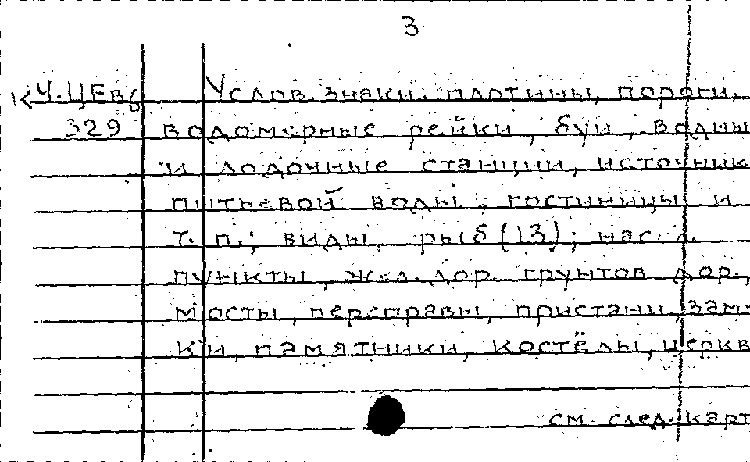 3
К-Ч.ЦЕв6 Услов. знаки: плотины, пороги,
329 водомерные рейки, буи, водны
и лодочные станции, источник
питьевой воды, гостиницы и
т. п.; виды рыб (13); нас.
пункты, жел. дор. грунтов. дор.,
мосты, переправы, пристани, зам-
ки, памятники, костёлы, церкв
см. след. карт